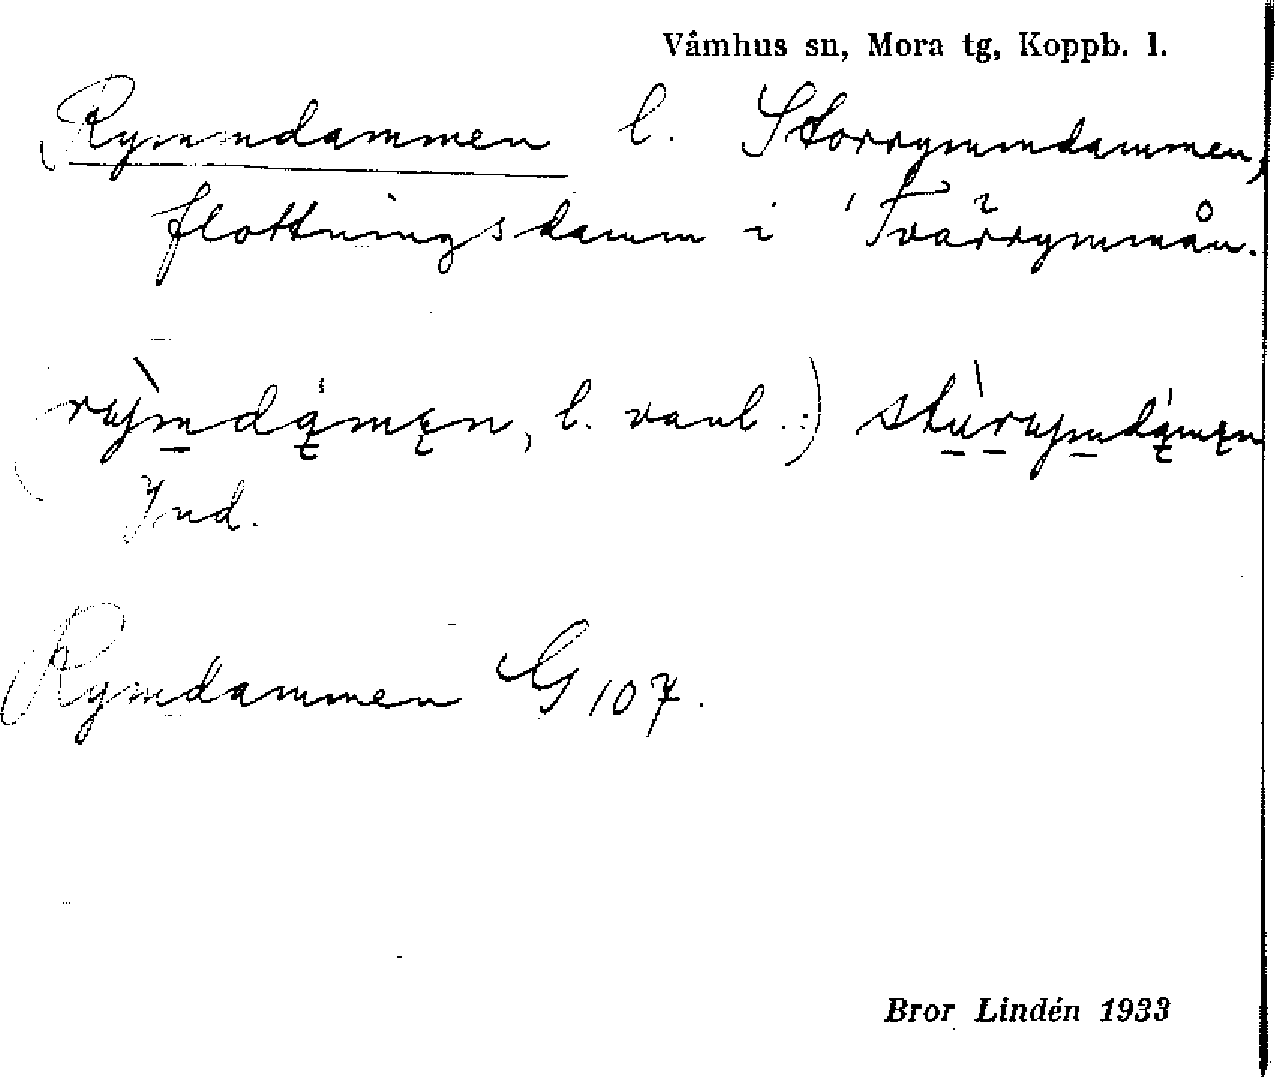 Våmhus sn, Mora tg, Koppb. l.
(Rymmdammen l. Storrymmdammen,
flottningsdamm i Tvärrymmån.
(rỳmdą́męn, l. vanl.:) stùrymdą́męn
Ind.
Rymdammen G 107.
Bror Lindén 1933